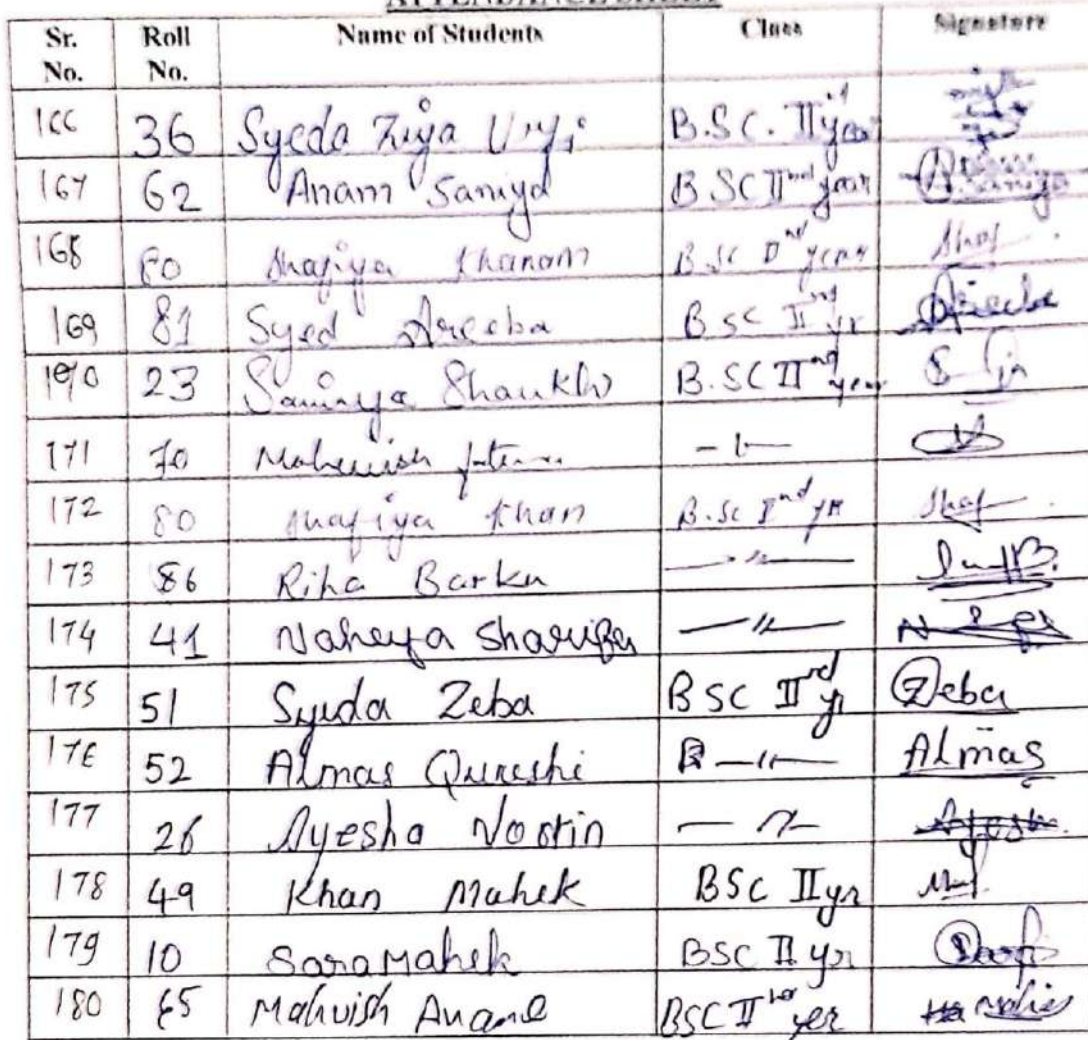 ATTENDANCE SHEET
Sr. No. Roll No. Name of Students Class Signature
166 36 Syeda Ziya Urfi B.SC. II year
167 62 Anam Saniya B SC IInd year A.Saniya
168 80 Shafiya Khanam B.Sc IInd year Shaf
169 81 Syed Areeba B SC II yr Areeba
170 23 Saniya Shaukh B.SC IInd year
171 70 Mahewish fatema - 〃 -
172 80 Shafiya Khan B.Sc IInd yr Shaf
173 86 Riha Barku - 〃 -
174 41 Naheya Sharifa - 〃 -
175 51 Syeda Zeba B SC II yr Zeba
176 52 Almas Qureshi B - 〃 - Almas
177 26 Ayesha Nostin - 〃 - Ayesha
178 49 Khan Mahek BSC II yr
179 10 Sara Mahek BSC II yr
180 65 Mahvish Anand BSC II yer